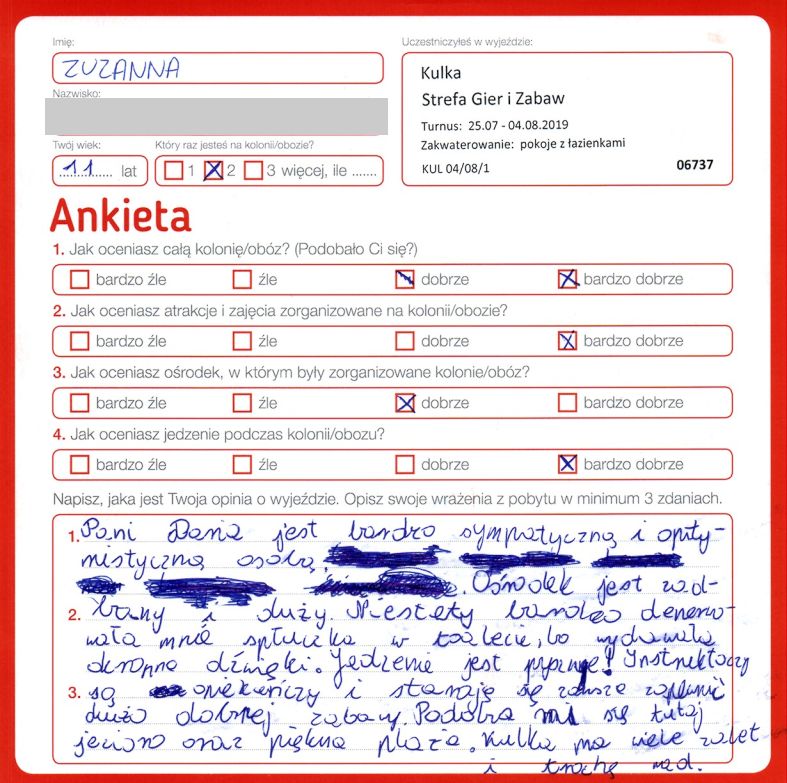 Imię: Uczestniczyłeś w wyjeździe:
ZUZANNA
Kulka
Strefa Gier i Zabaw
Nazwisko:
Turnus: 25.07 - 04.08.2019
Zakwaterowanie: pokoje z łazienkami
KUL 04/08/1 06737
Twój wiek: Który raz jesteś na kolonii/obozie?
11 lat 1 2 3 więcej, ile .......
Ankieta
1. Jak oceniasz całą kolonię/obóz? (Podobało Ci się?)
bardzo źle źle dobrze bardzo dobrze
2. Jak oceniasz atrakcje i zajęcia zorganizowane na kolonii/obozie?
bardzo źle źle dobrze bardzo dobrze
3. Jak oceniasz ośrodek, w którym były zorganizowane kolonie/obóz?
bardzo źle źle dobrze bardzo dobrze
4. Jak oceniasz jedzenie podczas kolonii/obozu?
bardzo źle źle dobrze bardzo dobrze
Napisz, jaka jest Twoja opinia o wyjeździe. Opisz swoje wrażenia z pobytu w minimum 3 zdaniach.
1. Pani Daria jest bardzo sympatyczną i opty-
mistyczną osobą
. Ośrodek jest zad-
2. bany i duży. Niestety bardzo denerwo-
wała mnie spłuczka w toalecie, bo wydawała
okropne dźwięki. Jedzenie jest pyszne! Instruktorzy
3. są opiekuńczy i starają się zawsze zapewnić
dużo dobrej zabawy. Podoba mi się tutaj
jezioro oraz piękna plaża. Kulka ma wiele zalet
i trochę wad.